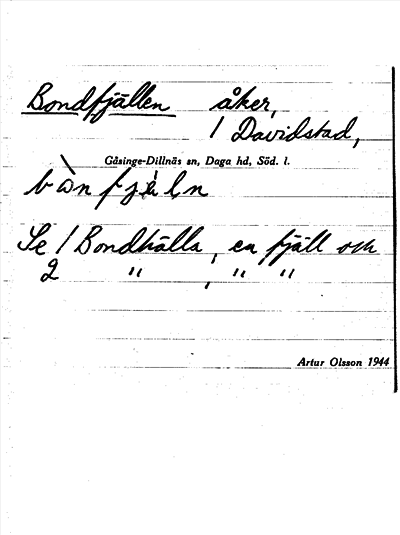 Bondfjällen åker,
/ Davidstad,
Gåsinge-Dillnäs sn, Daga hd, Söd. l.
bònfjäl,n
Se / Bondhälla, en fjäll och
2 " , " "
Artur Olsson 1944